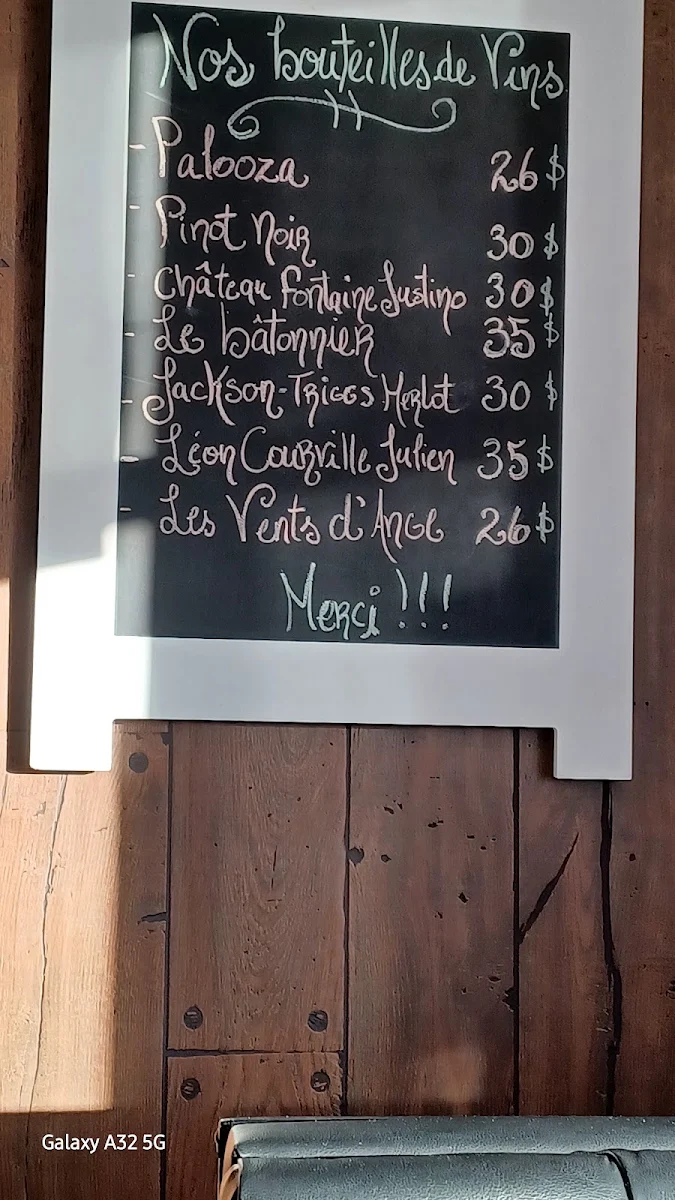 Nos bouteilles de Vins
- Palooza 26 $
- Pinot Noir 30 $
- Château Fontaine Justino 30 $
- Le bâtonnier 35 $
- Jackson-Triggs Merlot 30 $
- Léon Courville Julien 35 $
- Les Vents d'Ange 26 $
Merci !!!
Galaxy A32 5G